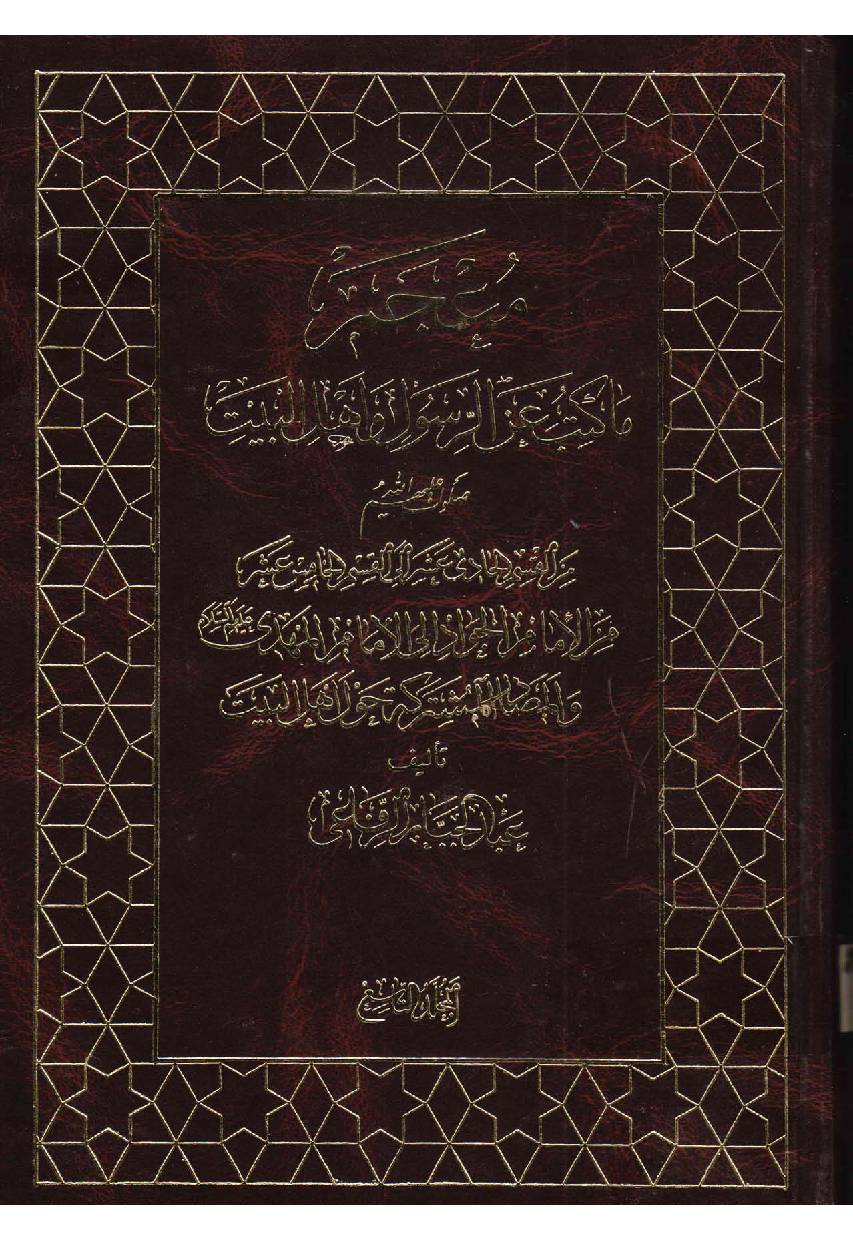 معجم
ما كتب عن الرسول وأهل البيت
صلوات الله عليهم
من القسم الحادي عشر إلى القسم الخامس عشر
من الإمام الجواد إلى الإمام المهدي عليهم السلام
والمصادر المشتركة حول أهل البيت
تأليف
عبد الجبار الرفاعي
المجلد التاسع